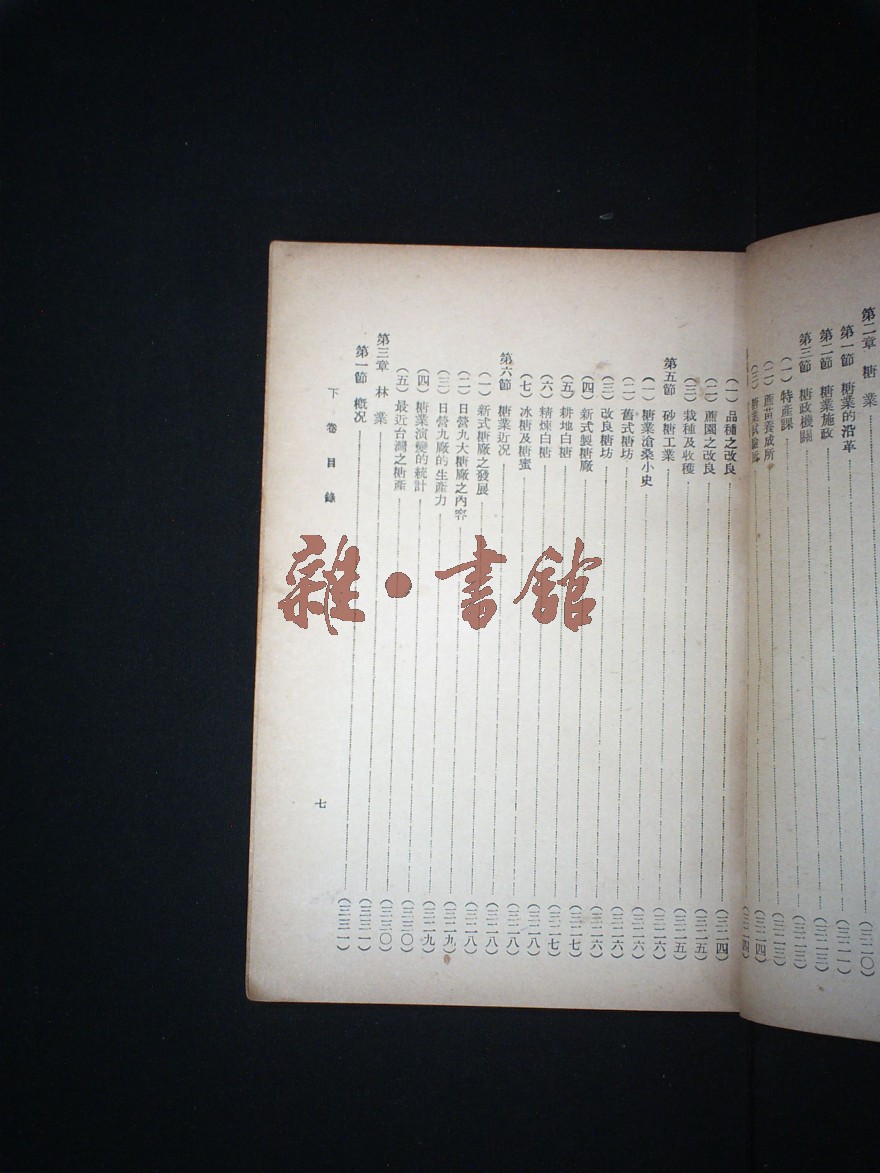 第二章 糖業(三二〇)
第一節 糖業的沿革(三二一)
第二節 糖業施政(三二三)
第三節 糖政機關(三二三)
(一)特產課(三二三)
(二)蔗苗養成所(三二四)
(三)糖業試驗所(三二四)
(一)品種之改良(三二四)
(二)蔗園之改良(三二五)
(三)栽種及收穫(三二五)
第五節 砂糖工業(三二六)
(一)糖業滄桑小史(三二六)
(二)舊式糖坊(三二六)
(三)改良糖坊(三二六)
(四)新式製糖廠(三二七)
(五)耕地白糖(三二七)
(六)精煉白糖(三二八)
(七)冰糖及糖蜜(三二八)
第六節 糖業近况(三二八)
(一)新式糖廠之發展(三二八)
(二)日營九大糖廠之內容(三二九)
(三)日營九廠的生產力(三二九)
(四)糖業演變的統計(三三〇)
(五)最近台灣之糖產(三三〇)
第三章 林業(三三一)
第一節 概况(三三一)
下卷目錄
七
雜·書館